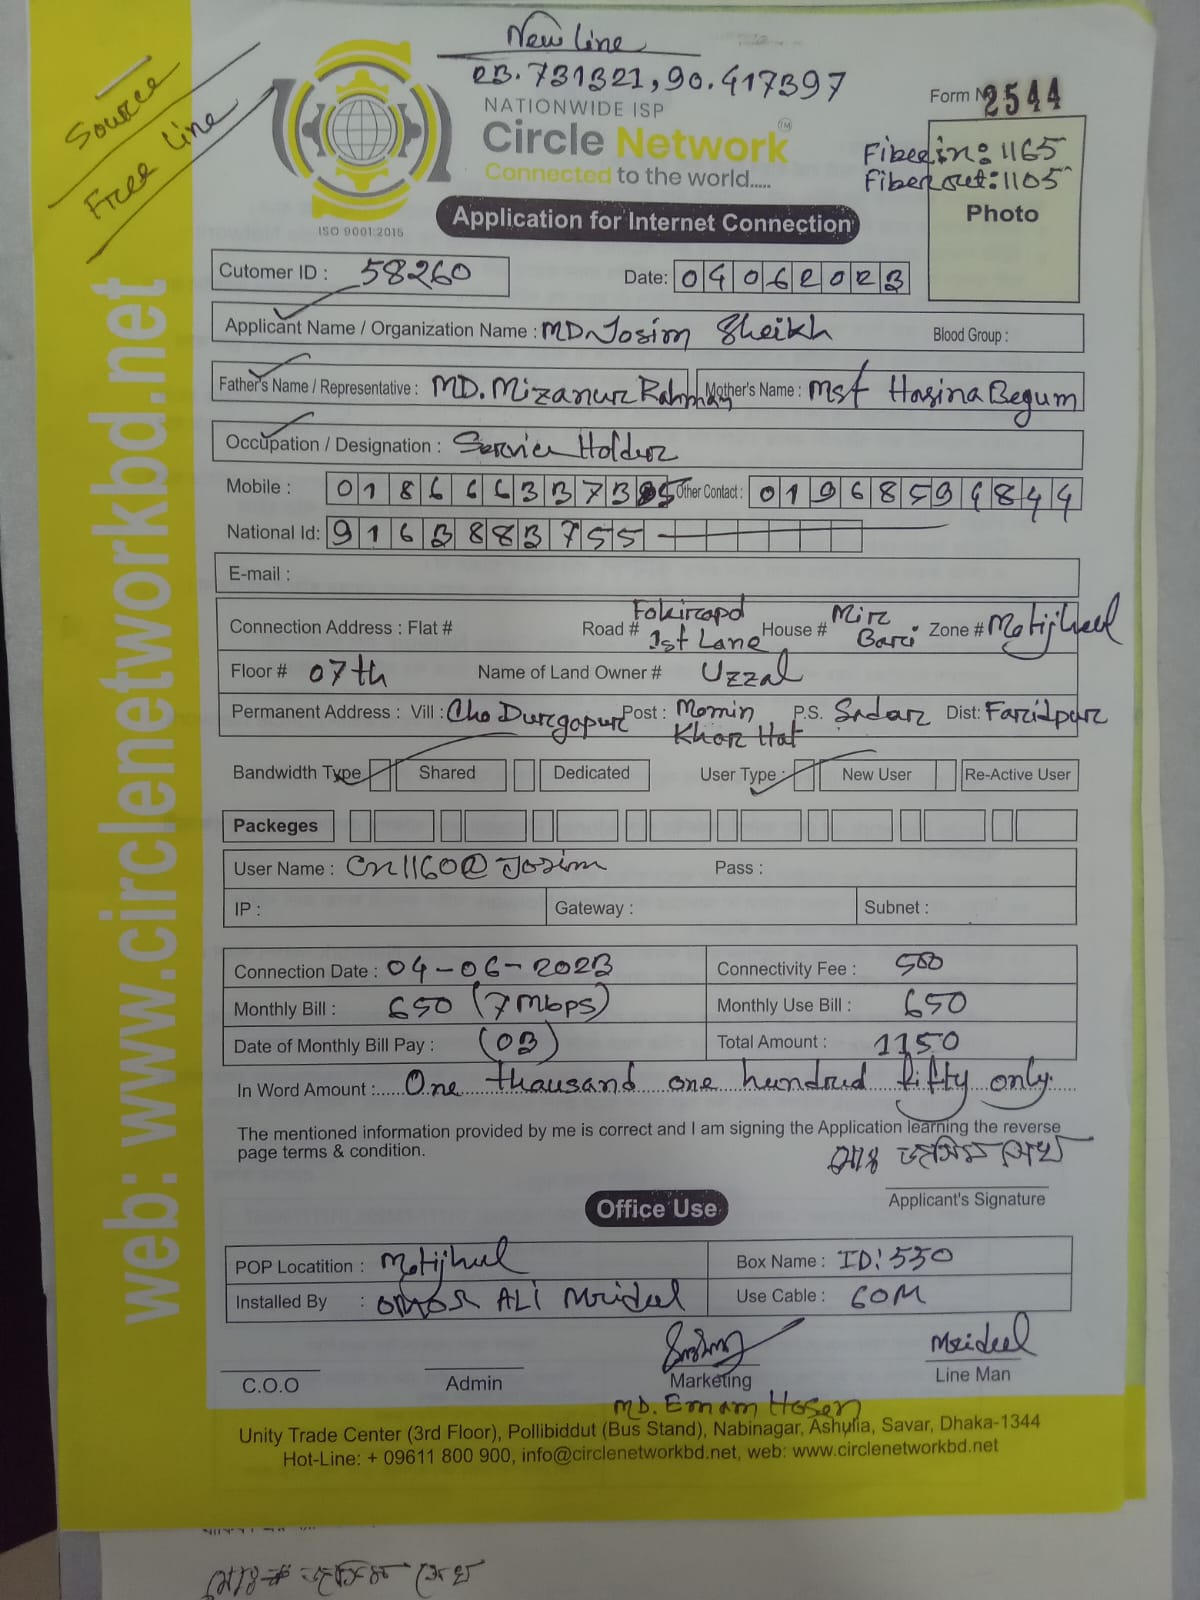 New Line
23.731321,90.417397
Source
Free line
NATIONWIDE ISP
Circle Network
TM
Connected to the world.....
ISO 9001:2015
Form N 2544
Fiber in: 1165
Fiber out: 1105
Photo
Application for Internet Connection
Cutomer ID : 58260
Date: 04062023
Applicant Name / Organization Name : MD. Josim Sheikh Blood Group :
Father's Name / Representative : MD. Mizanur Rahman Mother's Name : Mst Hasina Begum
Occupation / Designation : Service Holder
Mobile : 018666337385 Other Contact : 01968594844
National Id: 9163883755
E-mail :
Connection Address : Flat # Road # Fokirapol 1st Lane House # Mir Bari Zone # Motijheel
Floor # 07th Name of Land Owner # Uzzal
Permanent Address : Vill : Cho Durgapur Post : Momin Khar Hat P.S. Sadar Dist: Faridpur
Bandwidth Type Shared Dedicated User Type : New User Re-Active User
Packeges
User Name : Cn1160@Josim Pass :
IP : Gateway : Subnet :
Connection Date : 04-06-2023 Connectivity Fee : 500
Monthly Bill : 650 (7 Mbps) Monthly Use Bill : 650
Date of Monthly Bill Pay : (03) Total Amount : 1150
In Word Amount :...... One thausand one hundred fifty only.
The mentioned information provided by me is correct and I am signing the Application learning the reverse
page terms & condition.
মোঃ জসিম শেখ
Applicant's Signature
Office Use
POP Locatition : Motijheel Box Name : ID: 530
Installed By : OMOR ALI Mridul Use Cable : 60M
Mridul
C.O.O Admin Marketing Line Man
MD. Emam Hosen
Unity Trade Center (3rd Floor), Pollibiddut (Bus Stand), Nabinagar, Ashulia, Savar, Dhaka-1344
Hot-Line: + 09611 800 900, info@circlenetworkbd.net, web: www.circlenetworkbd.net
web: www.circlenetworkbd.net
মোঃ জসিম শেখ